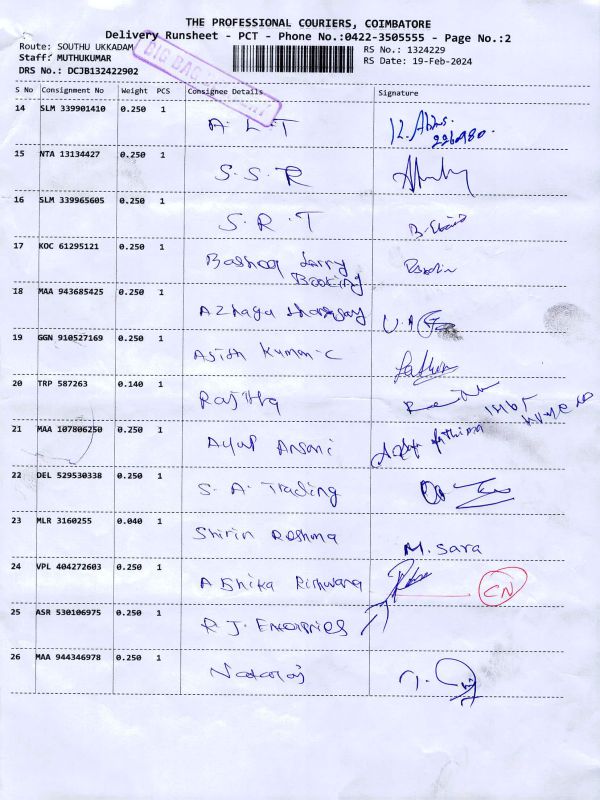 THE PROFESSIONAL COURIERS, COIMBATORE
Delivery Runsheet - PCT - Phone No.:0422-3505555 - Page No.:2
Route: SOUTHU UKKADAM
RS No.: 1324229
Staff: MUTHUKUMAR
RS Date: 19-Feb-2024
DRS No.: DCJB132422902
BIG BAG
S No Consignment No Weight PCS Consignee Details Signature
14 SLM 339901410 0.250 1 A. L. T
226980.
15 NTA 13134427 0.250 1 S. S. R
16 SLM 339965605 0.250 1 S. R. T
17 KOC 61295121 0.250 1 Lorry
Booking
18 MAA 943685425 0.250 1 Azhagu
19 GGN 910527169 0.250 1 Ajith Kumar. C
20 TRP 587263 0.140 1 Rajitha
21 MAA 107806250 0.250 1 Ayup Ansari
22 DEL 529530338 0.250 1 S. A. Trading
23 MLR 3160255 0.040 1 Shirin Reshma M. Sara
24 VPL 404272603 0.250 1 CN
25 ASR 530106975 0.250 1 R. J.
26 MAA 944346978 0.250 1 Nataraj